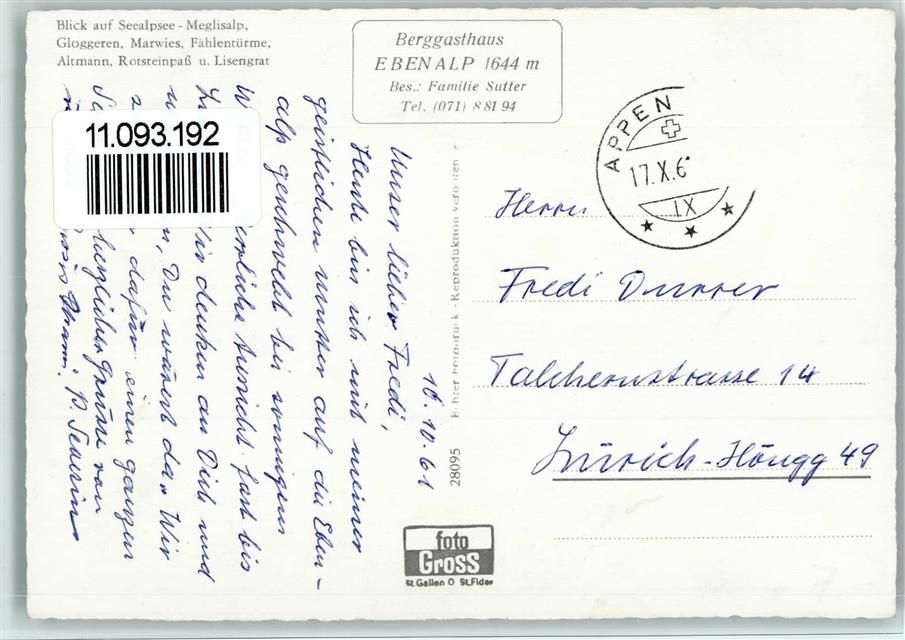 Blick auf Seealpsee - Meglisalp,
Gloggeren, Marwies, Fählentürme,
Altmann, Rotsteinpaß u. Lisengrat
Berggasthaus
EBENALP 1644 m
Bes.: Familie Sutter
Tel. (071) 8 81 94
11.093.192
APPEN
17.X.6
IX
16.10.61
Unser lieber Fredi,
Heute bin ich mit meiner
geistlichen Mutter auf die Eben-
alp geschwebt bei sonnigem
herrliche Aussicht fast bis
Wir denken an Dich und
Du wärest da. Wir
dafür einen ganzen
herzliche Grüsse von
P. Severin
Herrn
Fredi Durrer
Talchernstrasse 14
Zürich-Höngg 49
28095 Fotodruck - Reproduktion verboten
foto
Gross
St.Gallen O St.Fiden